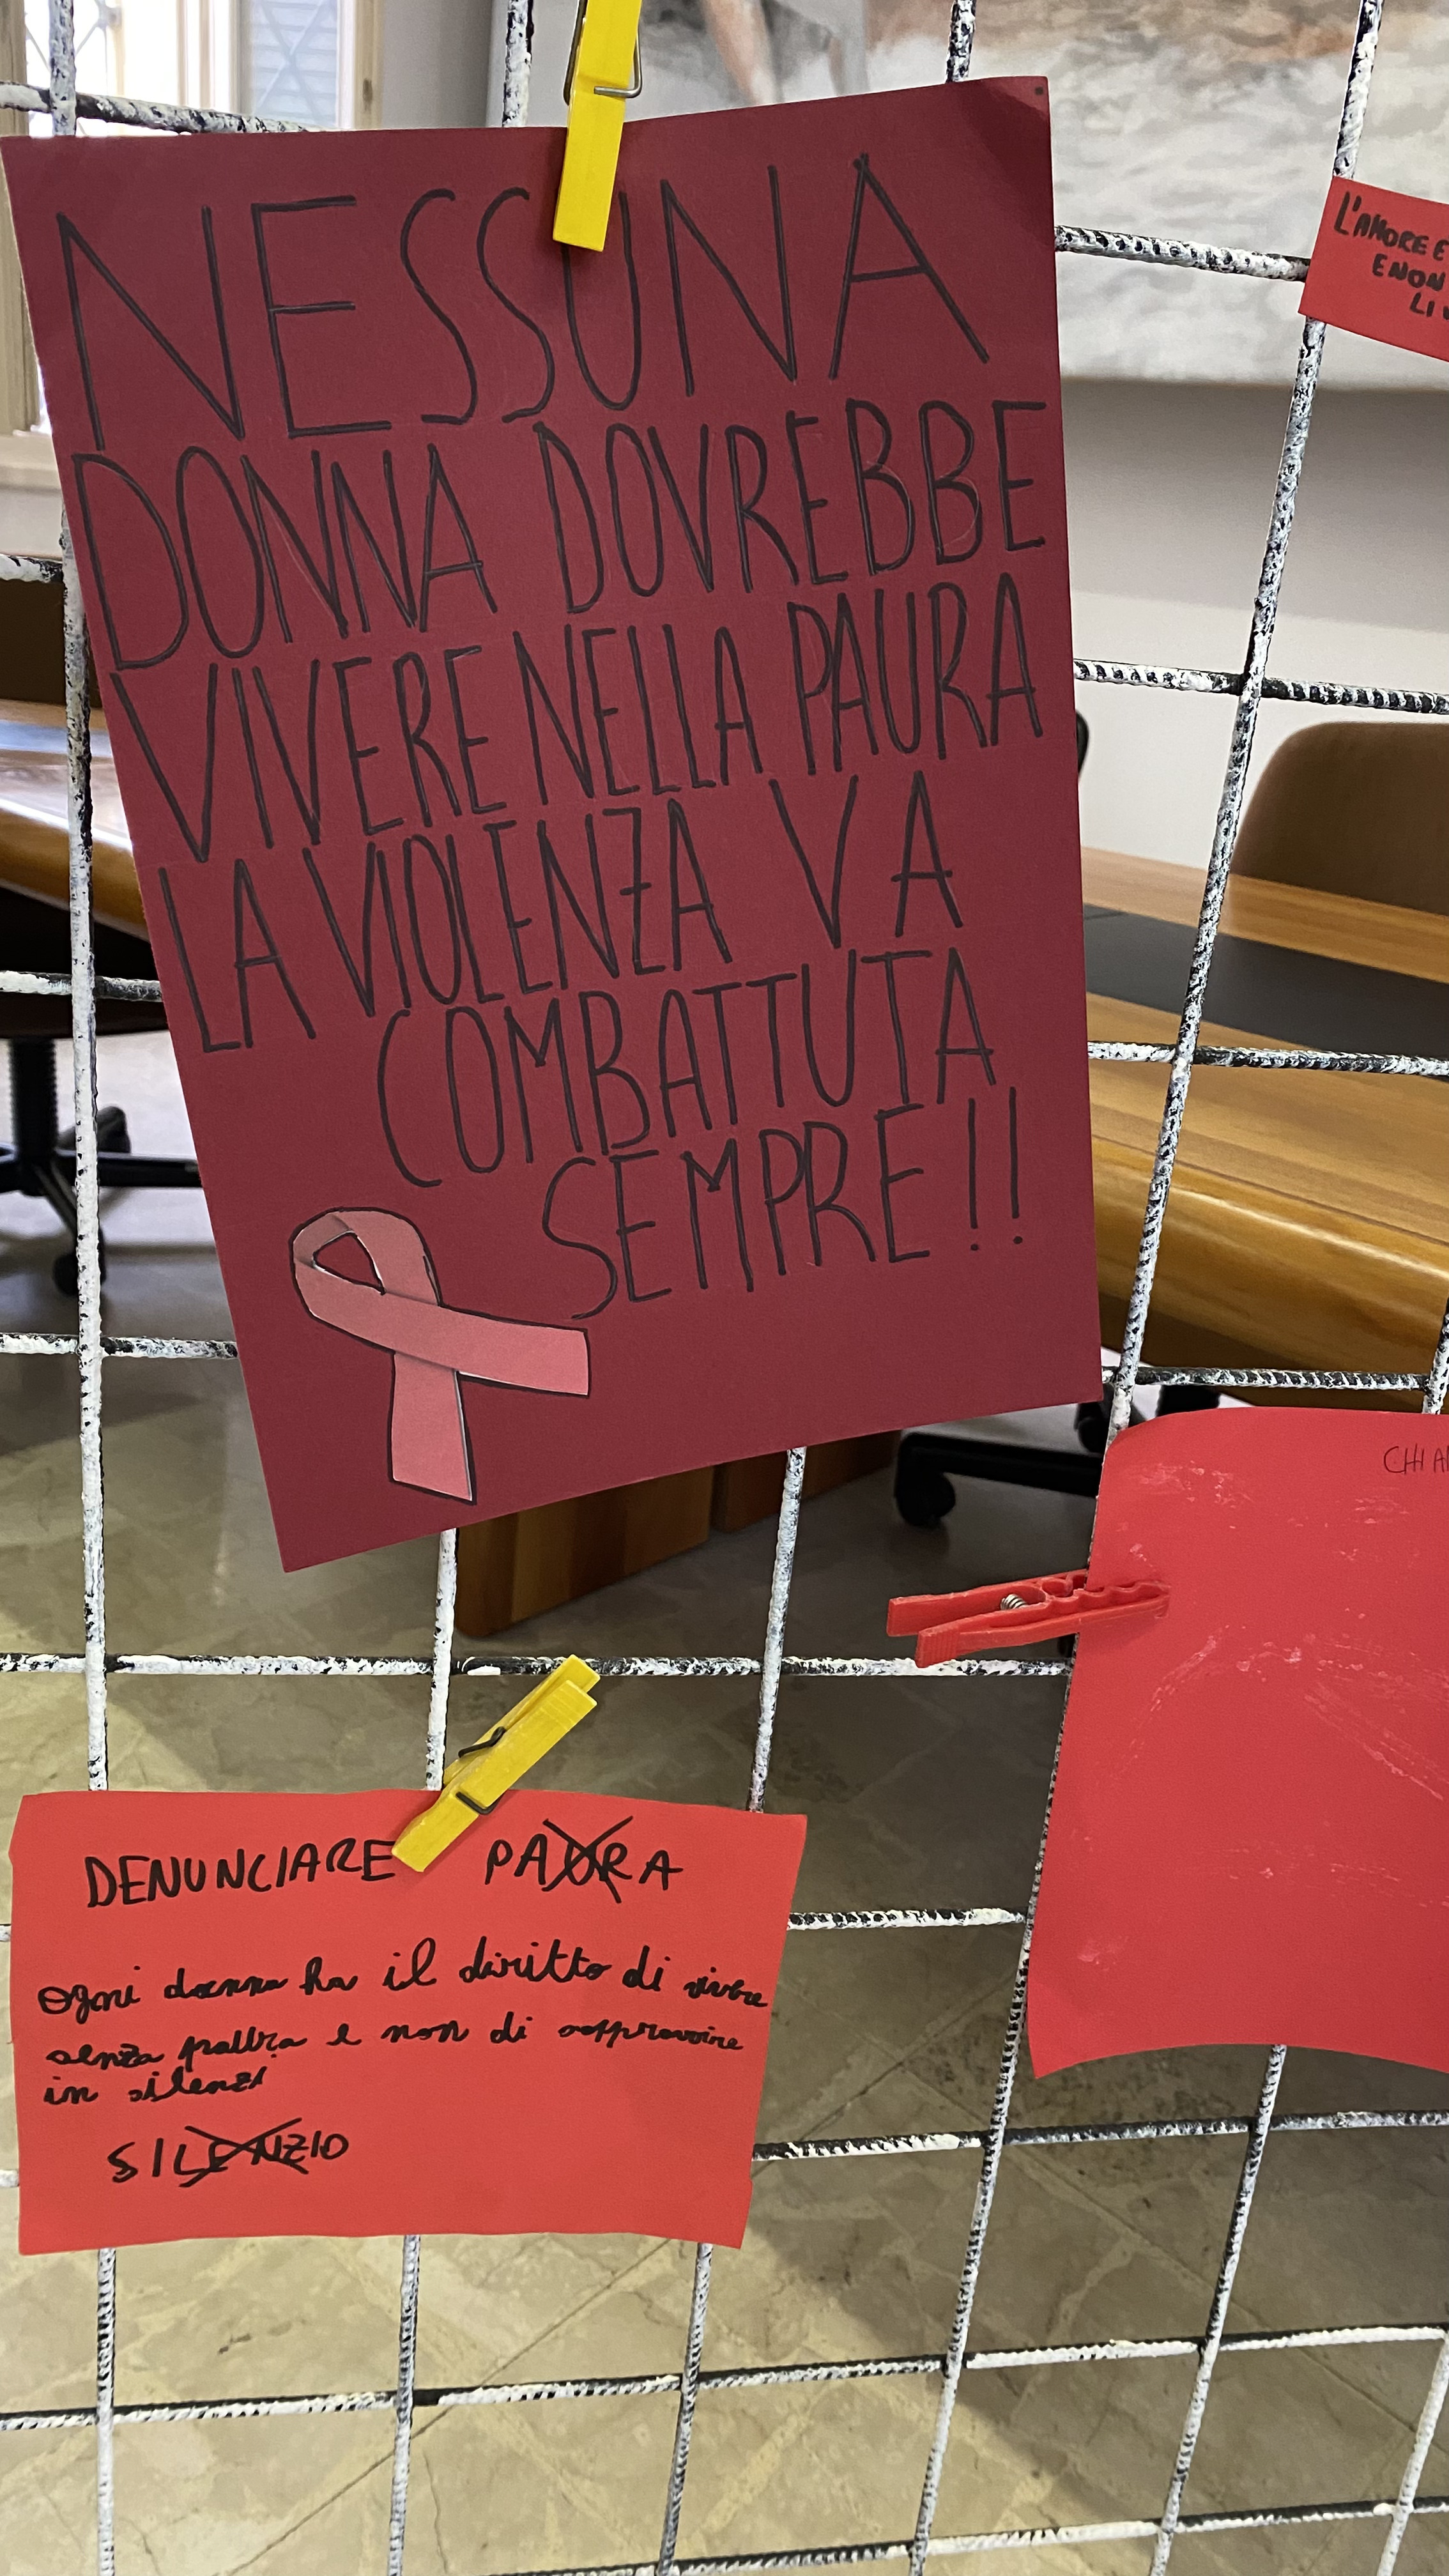 NESSUNA
DONNA DOVREBBE
VIVERE NELLA PAURA
LA VIOLENZA VA
COMBATTUTA
SEMPRE!!
L'AMORE E
E NON
LI
CHI
DENUNCIARE PAURA
Ogni donna ha il diritto di vivere
senza paura e non di
in silenzi
SILENZIO